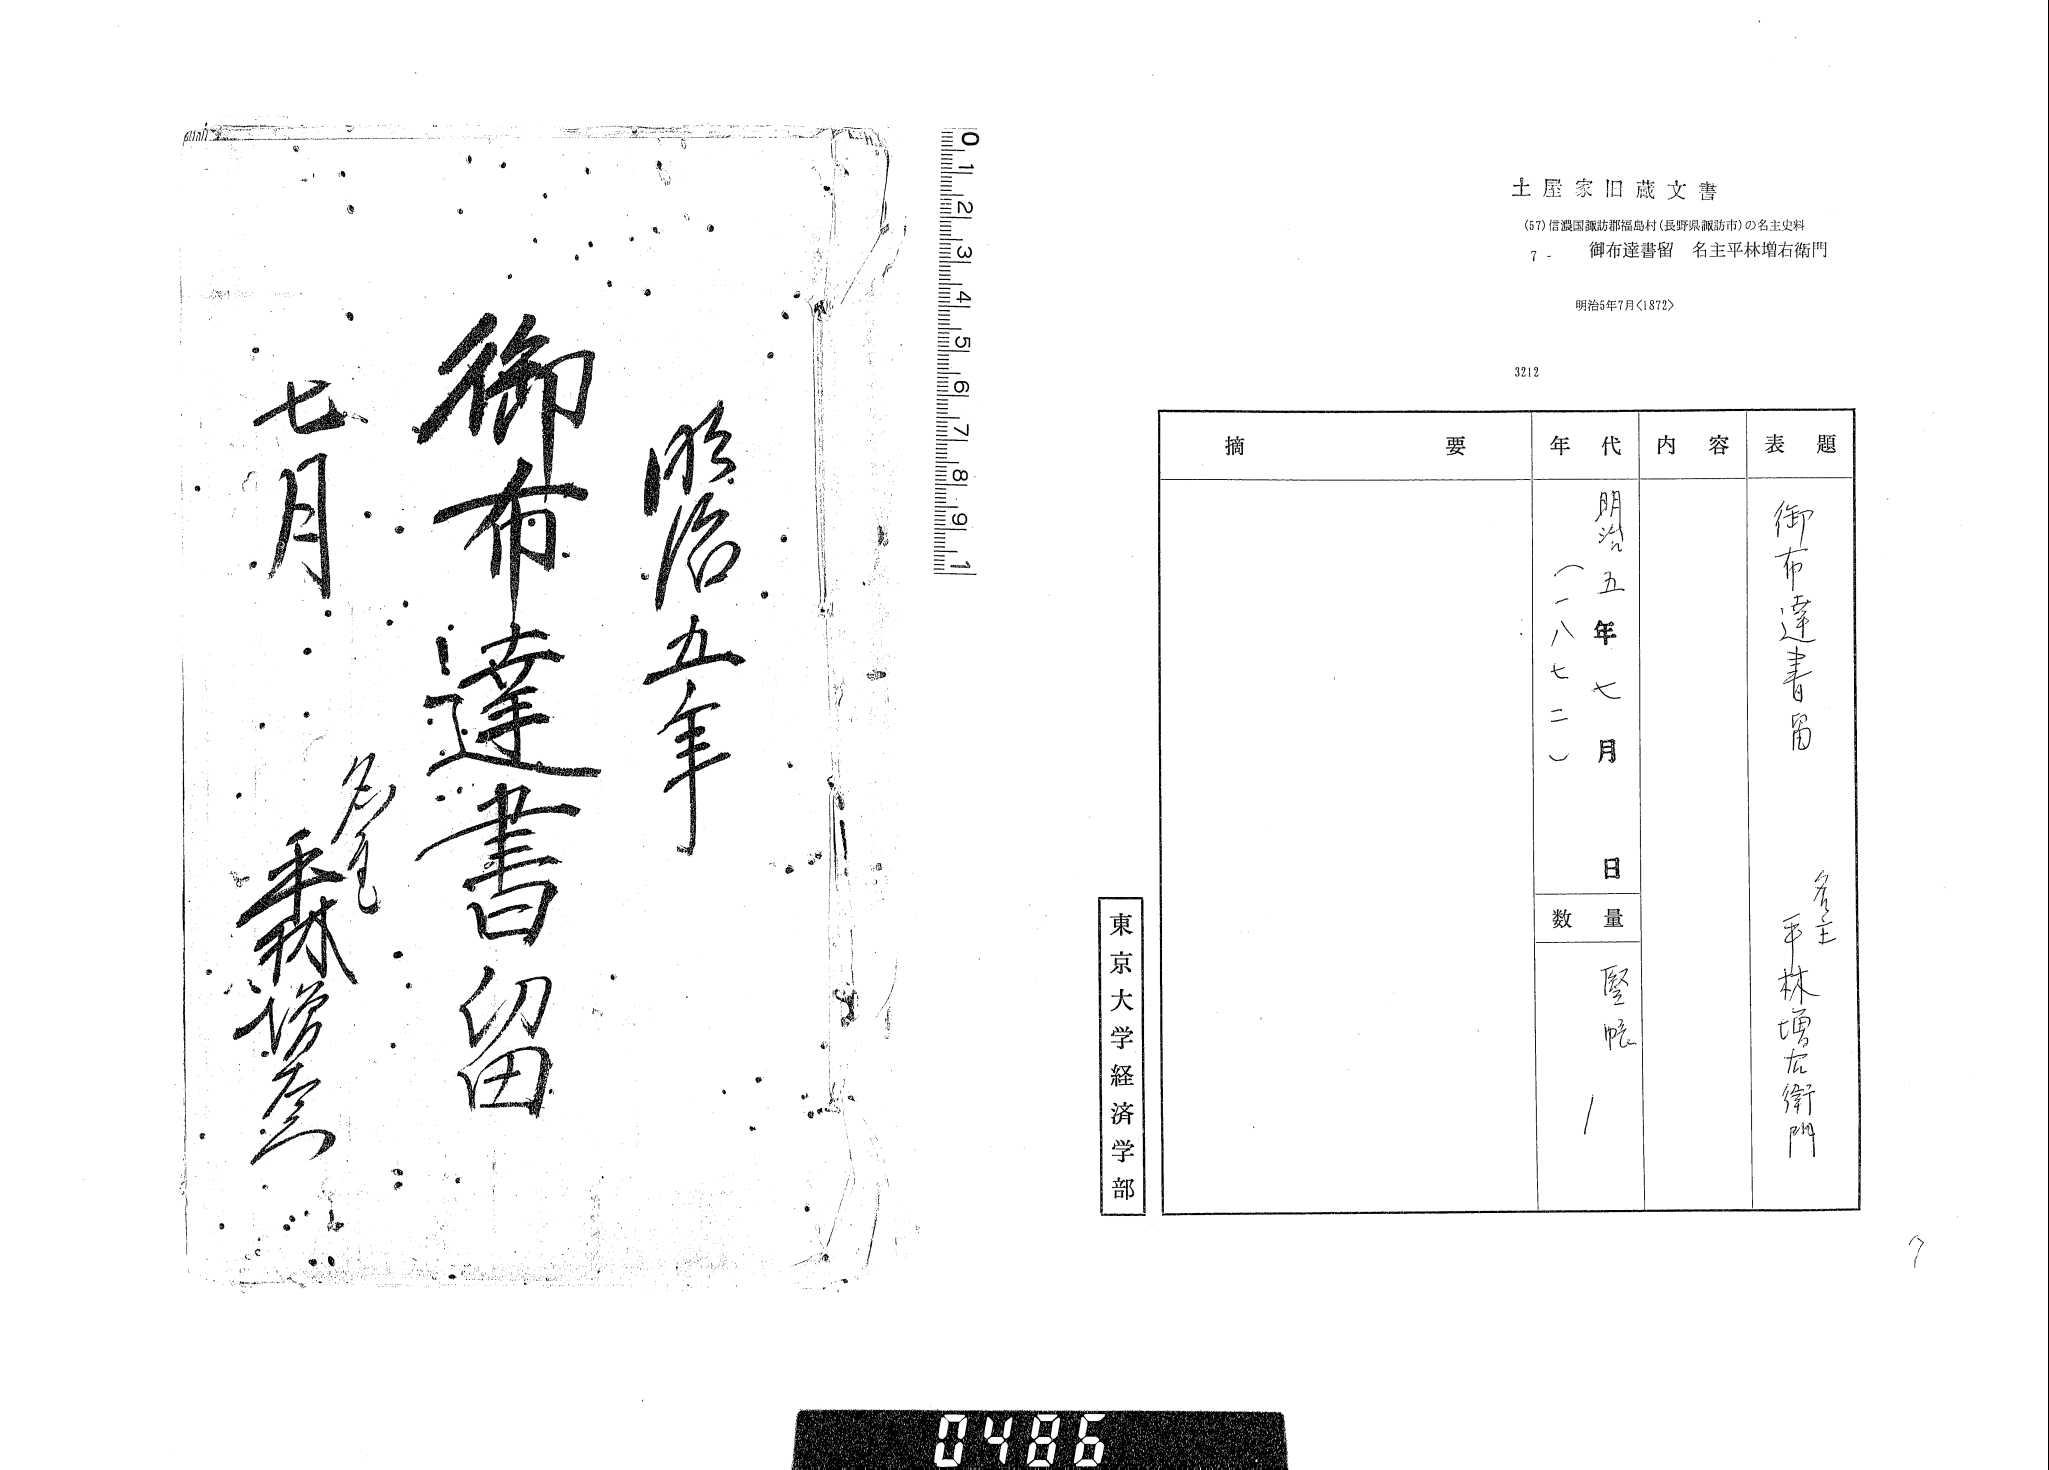 土屋家旧蔵文書
(57)信濃国諏訪郡福島村(長野県諏訪市)の名主史料
7 - 御布達書留 名主平林増右衛門
明治5年7月<1872>
3212
表題
御布達書留
名主
平林増右衛門
内容
年代
明治五年七月 日
(一八七二)
数量
竪帳
1
摘要
東京大学経済学部
7
0 1 2 3 4 5 6 7 8 9 1
明治五年
御布達書留
七月
名主
平林増右衛門
0486